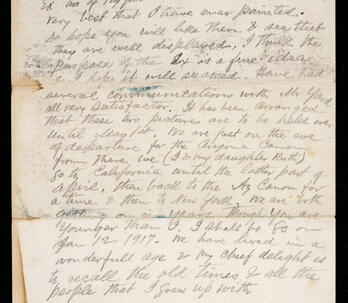 Ex
very best that I have ever painted.
I hope you will like them & see that
they are well displayed. I think the
purpose of the Ex is a fine idea
& I hope it will succeed. Have had
several communications with Mr
all very satisfactory. It has been arranged
that these two pictures are to be held over
until May 1st. We are just on the eve
of departure for the Arizona Canon
from there, we (I & my daughter Ruth)
go to California until the latter part of
April, then back to the Az Canon for
a time & then to New York. We are both
getting on in years though you are
younger than I. I shall be 80 on
Jan 12 1917. We have lived in a
wonderfull age & my chief delight is
to recall the old times & all the
people that I grew up with